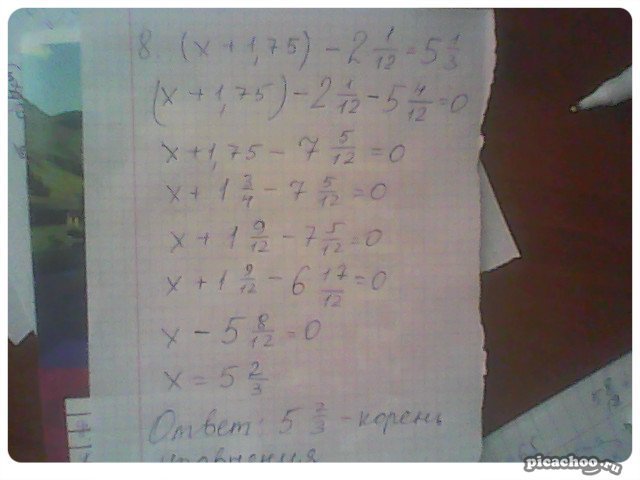 8. (x + 1,75) - 2 1/12 = 5 1/3
(x + 1,75) - 2 1/12 - 5 4/12 = 0
x + 1,75 - 7 5/12 = 0
x + 1 3/4 - 7 5/12 = 0
x + 1 9/12 - 7 5/12 = 0
x + 1 9/12 - 6 17/12 = 0
x - 5 8/12 = 0
x = 5 2/3
Ответ: 5 2/3 - корень
уравнения
picachoo.ru